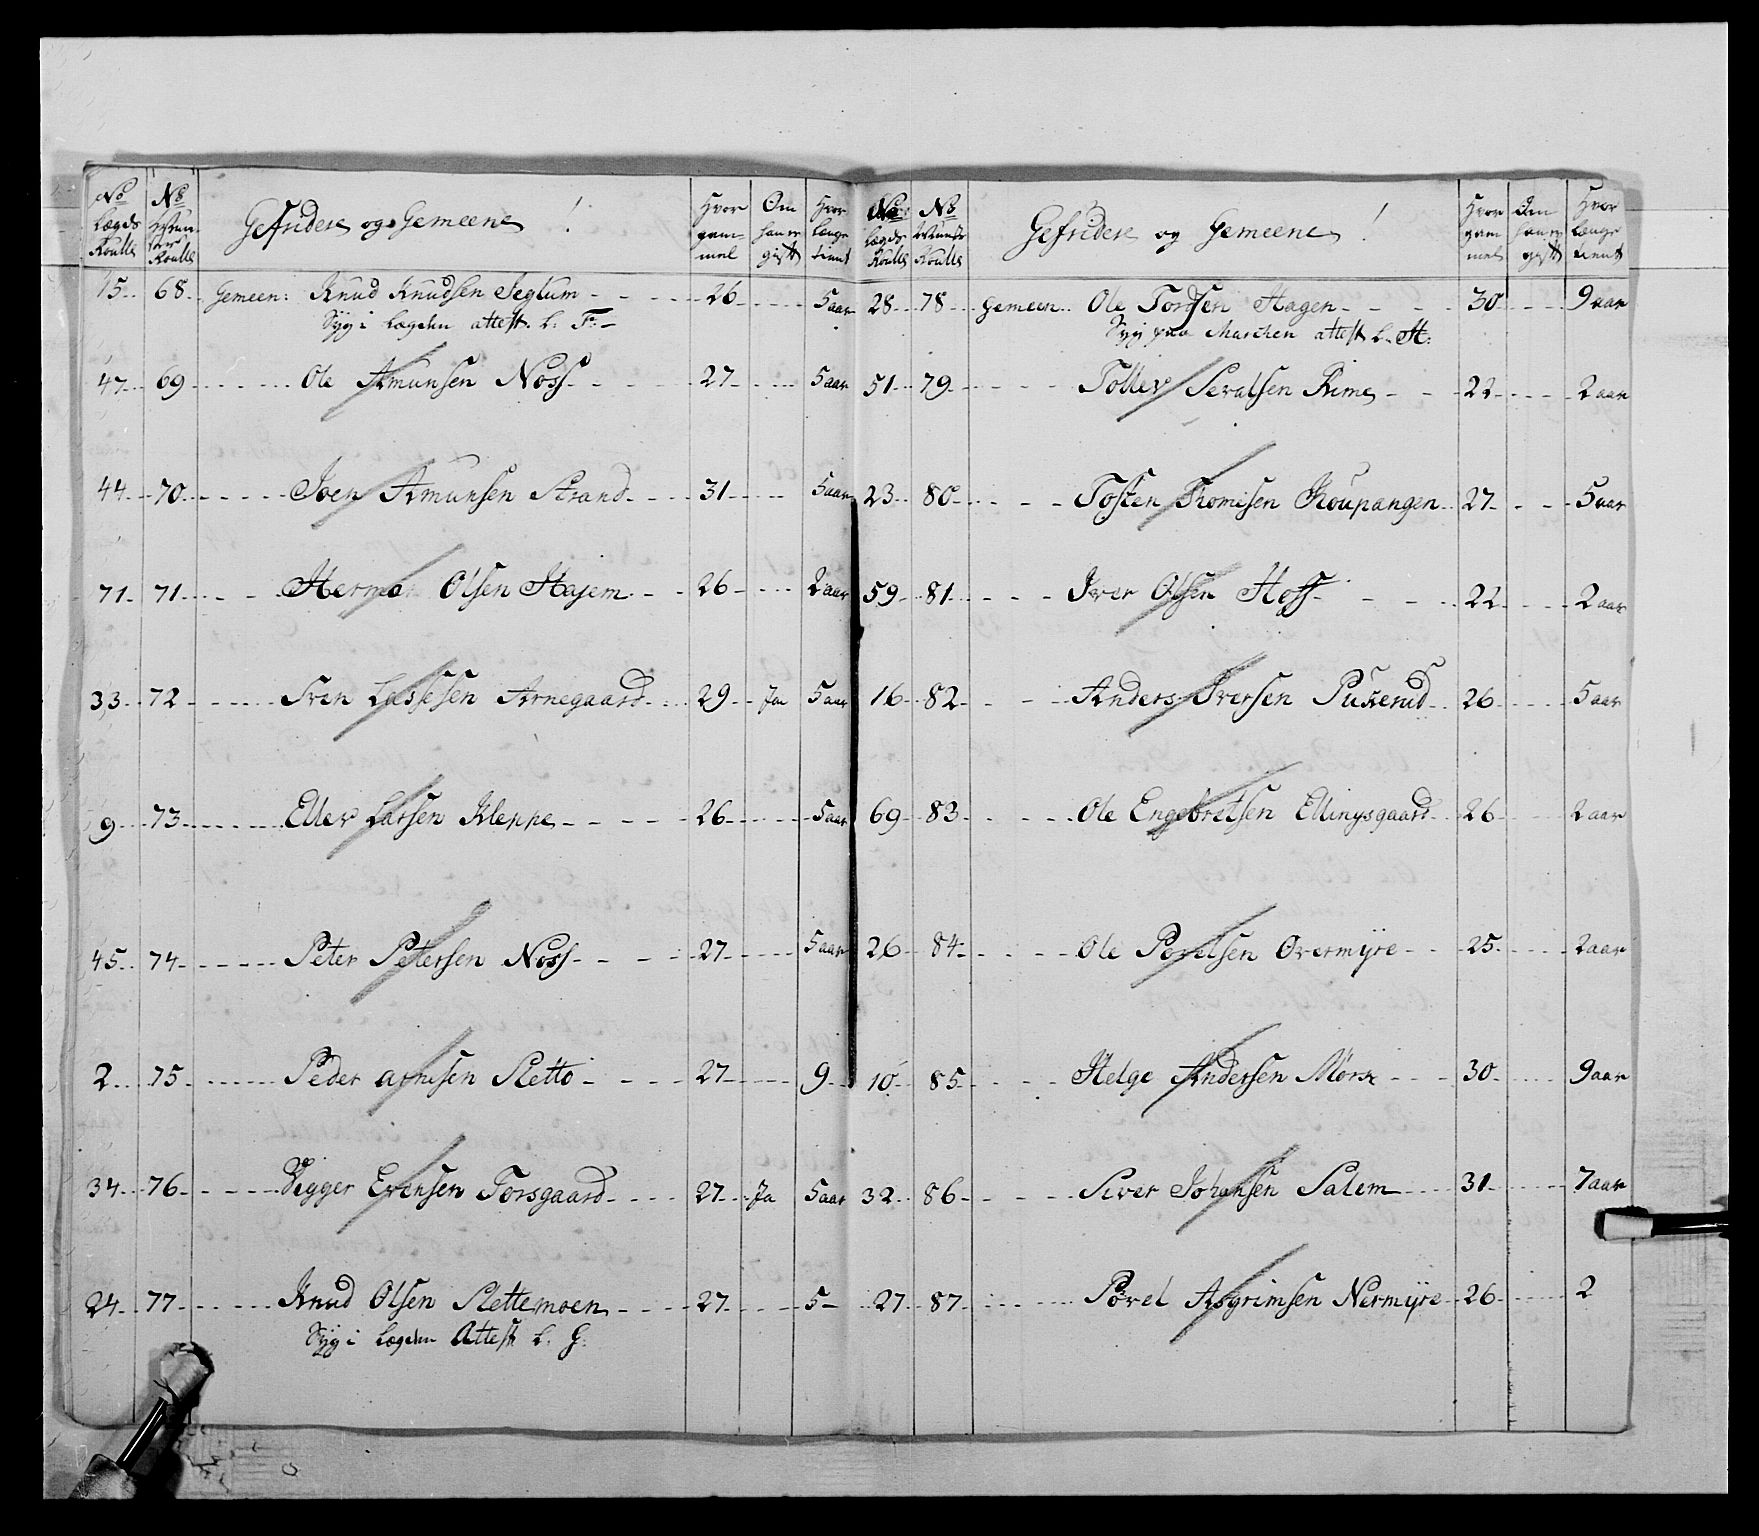 No Lægds Roulle | No Mun ster Roulle | Gefridere og Gemeene! | Hvor gam mel | Om han er gift | Hvor længe tient
15 68 Gemeen: Knud Knudsen Segtum 26 5 aar
Syg i Lægden attest. L. F:
47 69 Ole Amunsen Noss 27 5 aar
44 70 Joen Amunsen Strand 31 5 aar
71 71 Herman Olsen Hajem 26 2 aar
33 72 Sven Lassesen Arnegaard 29 Ja 5 aar
9 73 Ellev Larsen Kleppe 26 5 aar
45 74 Peter Petersen Noss 27 5 aar
2 75 Peder arnesen Sletto 27 9
34 76 Vegger Evensen Torsgaard 27 Ja 5 aar
24 77 Knud Olsen Slettemoen 27 5
Syg i Lægden Attest L. G:
No Lægds Roulle | No Munst Roulle | Gefridere og Gemeene! | Hvor gam mel | Om han er gift | Hvor længe tient
28 78 gemeen Ole Tordsen Hagen 30 9 aar
Syg paa Marchen attest L. H:
51 79 Tollev Sevalsen Rime 22 2 aar
23 80 Tosten Thomesen Koupangen 27 5 aar
59 81 Iver Olsen Hoff 22 2 aar
16 82 Anders Iversen Puterud 26 5 aar
69 83 Ole Engebretsen Ellingsgaard 26 2 aar
26 84 Ole Povelsen Overmyre 25 2 aar
10 85 Helge Andersen Mørk 30 9 aar
32 86 Siver Johansen Salem 31 7 aar
27 87 Povel Asgrimsen Nermyre 26 2